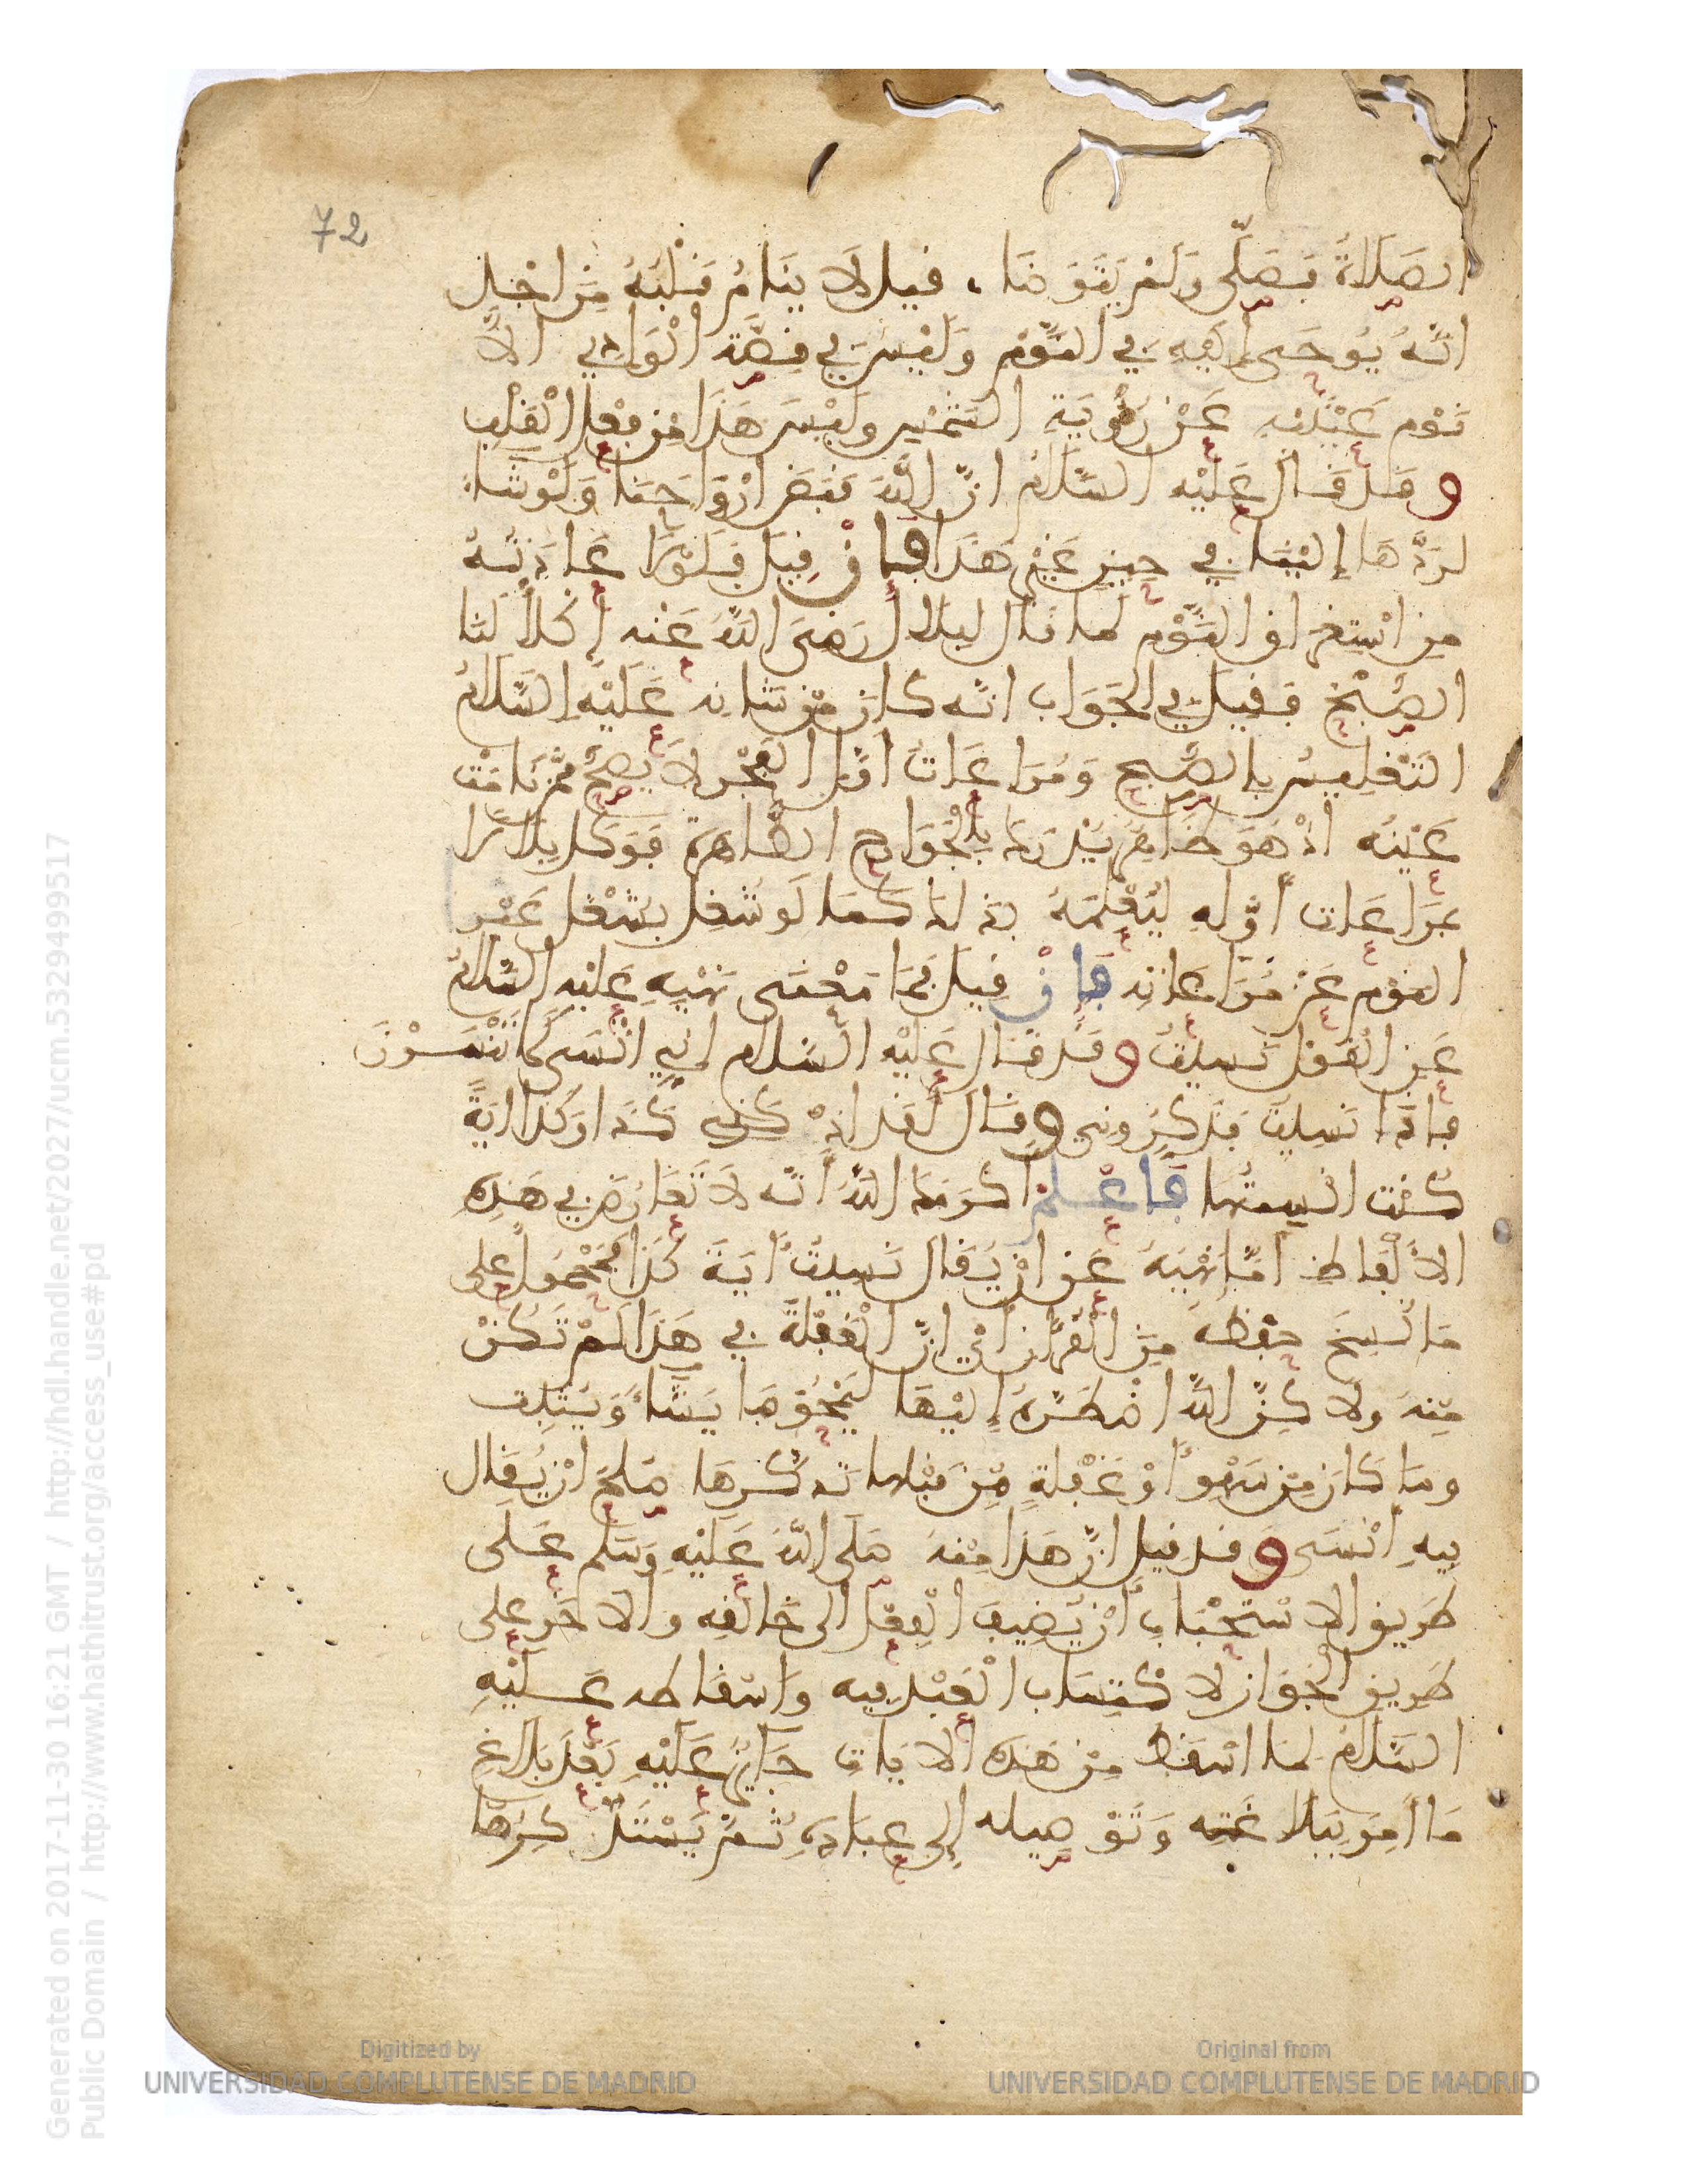 72
الصَّلَاةُ فَصَلَّى وَلَمْ يَتَوَضَّا، قيل لَا يَنَامُ قَلْبُهُ مِنَ اجْلِ
انَّهُ يُوحَى إليهِ في النَّوْمِ وَلَيْسَ في قِصَّةِ الْوَادِي الَّا
نَوْم عَيْنَيْهِ عَنْ رُؤْيَةِ الشَّمْسِ وليْسَ هَذَا مِنْ فِعْلِ الْقَلْبِ
وقد قال عَلَيْهِ السَّلَامُ انَّ اللَّهَ قَبَضَ ارْوَاحَنَا وَلَوْ شَاءَ
لرَدَّهَا إلَيْنَا في حِينٍ غَيْرِ هَذَا فإنْ قِيلَ فَلَوْلَا عَادَتُهُ
مِنِ اسْتِغْرَاقِ النَّوْمِ لما قال لِبِلَالٍ رَضِيَ اللَّهُ عَنْهُ إكْلَأْ لَنَا
الصُّبْحَ فَقِيلَ في الجَوَابِ انَّه كانَ مِنْ شَانِه عَلَيْهِ السَّلَامُ
التَّغْلِيسُ بِالصُّبْحِ وَمُرَاعَاتُ اوَّلِ الفَجْرِ لَا يَصِحُّ مِمَّنْ نَامَتْ
عَيْنُهُ اذْ هُوَ ظَاهِرٌ يُدْرَكُ بِالْجَوَارِحِ الظَّاهِرَةِ فَوَكَّلَ بِلَالًا
بمُرَاعَاتِ اوَّلِهِ لِيُعْلِمَهُ بذلك كَمَا لَو شُغِلَ بِشُغْلٍ غَيْرِ
النوْمِ عَنْ مُرَاعَاتِهِ فَإنْ قِيلَ فَمَا مَعْنَى نَهْيِهِ عَلَيْهِ السَّلَامُ
عَنِ الْقَوْلِ نَسِيتُ وقد قال عَلَيْهِ السَّلام إنِّي انْسَى كَمَا تَنْسَوْنَ
فإذَا نَسِيتُ فَذَكِّرُونِي وقَالَ لَقَد اذْكَرَنِي كَذَا وَكَذَا ايَةً
كُنْتُ انْسِيتُهَا فَاعْلَمْ اكْرَمَكَ اللَّهُ انَّه لَا تَعَارُضَ في هَذِهِ
الالْفَاظِ امَّا نَهْيُهُ عَنْ انْ يُقَالَ نَسِيتُ ايَةَ كَذَا فمَحْمُول على
مَا نُسِخَ حِفْظُهُ مِنَ الْقُرْآنِ ايْ انَّ الْغَفْلَةَ في هَذَا لَمْ تَكُنْ
مِنْهُ ولاكِنَّ اللَّهَ اضْطَرَّهُ إلَيْهَا لِيَمْحُوَ مَا يَشَاءُ وَيُثْبِت
ومَا كَانَ مِنْ سَهْوٍ اوْ غَفْلَةٍ مِنْ قِبَلِهِ تَذَكَّرَهَا صَلُحَ انْ يُقَالَ
فِيهِ انْسَى وقد قيل انَّ هَذَا مِنْهُ صَلى اللَّهُ عَلَيْهِ وَسَلَّم عَلَى
طَرِيقِ الاسْتِحْبَابِ انْ يُضِيفَ الْفِعْلَ الى خَالِقِهِ والاخَر على
طَرِيقِ الْجَوَازِ لاكْتِسَابِ الْعَبْدِ فِيهِ وَاسْقَاطُه عَلَيْهِ
السَّلَامُ لما اسْقَطَ مِنْ هَذِهِ الايَاتِ جَايِزٌ عَلَيْهِ بَعْدَ بَلَاغِ
مَا امِرَ بِبَلَاغِهِ وَتَوْصِيلِه إلى عِبَادِهِ ثُمَّ يَسْتَذْكِرُهَا